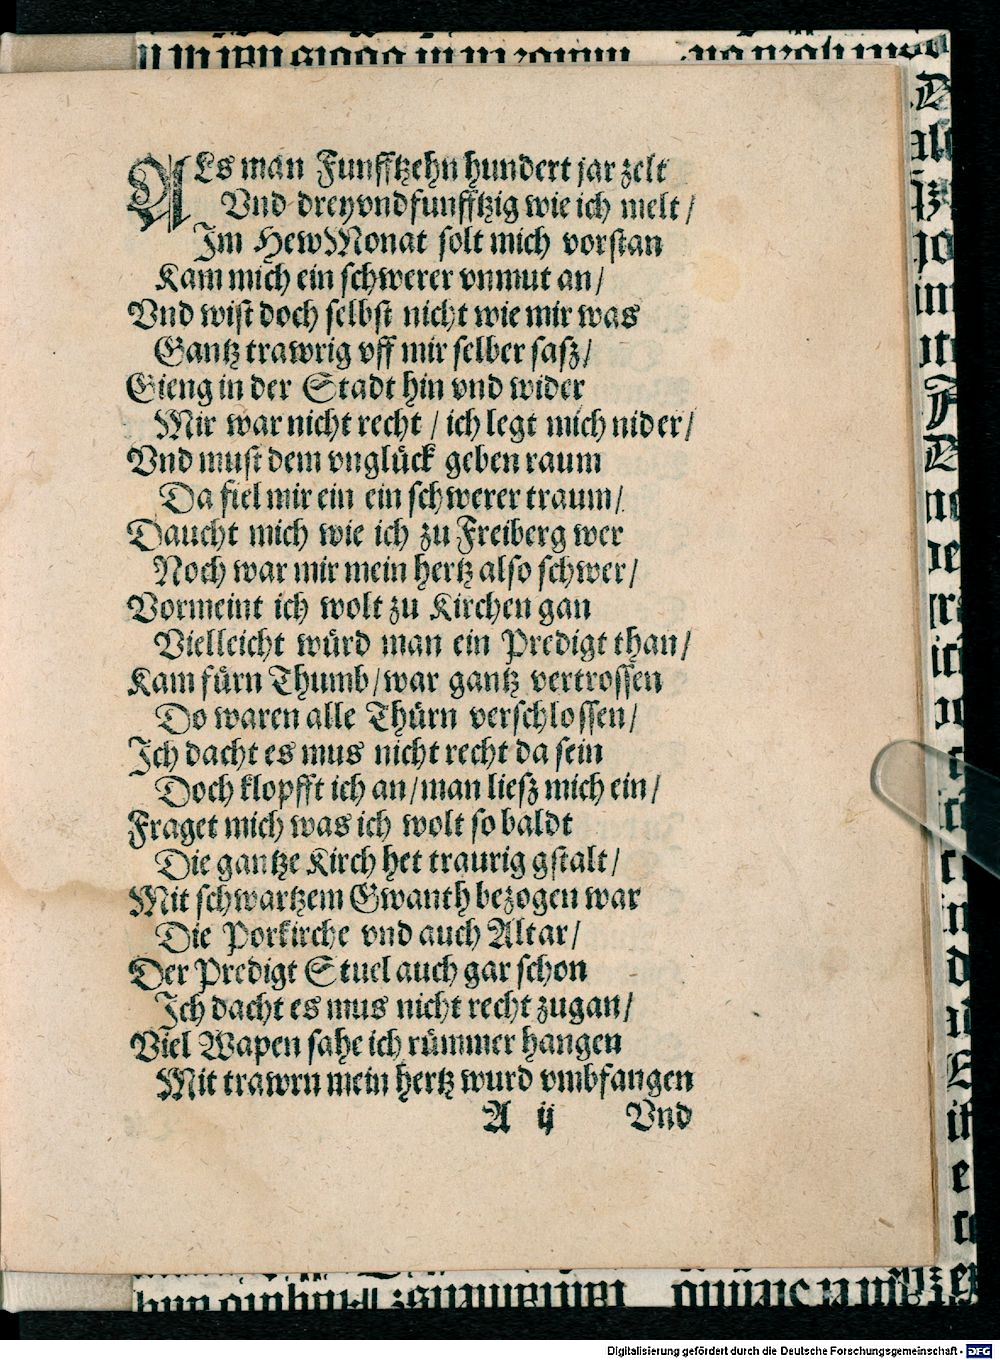 ALs man Funfftzehn hundert jar zelt
Vnd dreyvndfunfftzig wie ich melt /
Im HewMonat solt mich vorstan
Kam mich ein schwerer vnmut an /
Vnd wist doch selbst nicht wie mir was
Gantz trawrig vff mir selber sasz /
Gieng in der Stadt hin vnd wider
Mir war nicht recht / ich legt mich nider /
Vnd must dem vnglück geben raum
Da fiel mir ein ein schwerer traum /
Daucht mich wie ich zu Freiberg wer
Noch war mir mein hertz also schwer /
Vormeint ich wolt zu Kirchen gan
Vielleicht würd man ein Predigt than /
Kam fürn Thumb / war gantz vertrossen
Do waren alle Thürn verschlossen /
Ich dacht es mus nicht recht da sein
Doch klopfft ich an / man liesz mich ein /
Fraget mich was ich wolt so baldt
Die gantze Kirch het traurig gstalt /
Mit schwartzem Gwanth bezogen war
Die Porkirche vnd auch Altar /
Der Predigt Stuel auch gar schon
Ich dacht es mus nicht recht zugan /
Viel Wapen sahe ich rümmer hangen
Mit trawrn mein hertz wurd vmbfangen
A ij Vnd
Digitalisierung gefördert durch die Deutsche Forschungsgemeinschaft - DFG